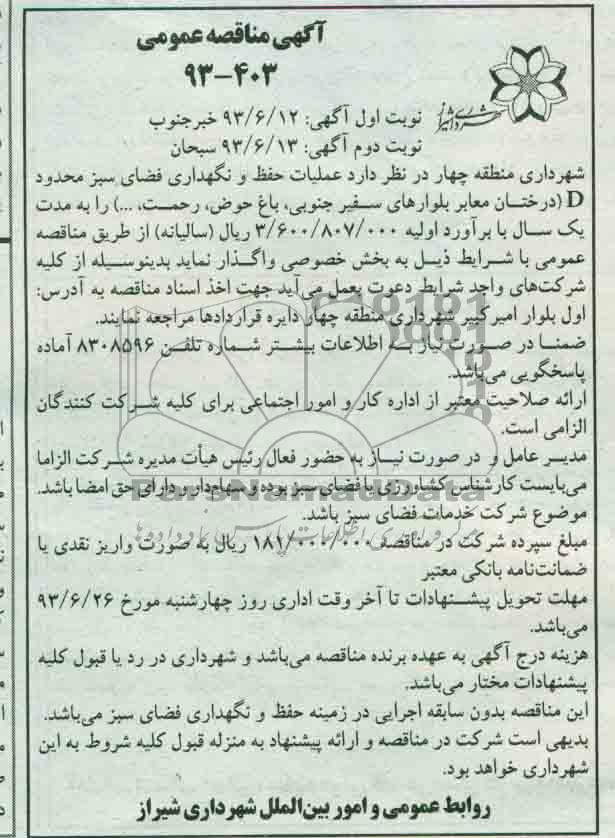 آگهی مناقصه عمومی
۹۳-۴۰۳
شهرداری شیراز
نوبت اول آگهی: ۹۳/۶/۱۲ خبرجنوب
نوبت دوم آگهی: ۹۳/۶/۱۳ سبحان
شهرداری منطقه چهار در نظر دارد عملیات حفظ و نگهداری فضای سبز محدود
D (درختان معابر بلوارهای سفیر جنوبی، باغ حوض، رحمت، ...) را به مدت
یک سال با برآورد اولیه ۳/۶۰۰/۸۰۷/۰۰۰ ریال (سالیانه) از طریق مناقصه
عمومی با شرایط ذیل به بخش خصوصی واگذار نماید بدینوسیله از کلیه
شرکت‌های واجد شرایط دعوت بعمل می‌آید جهت اخذ اسناد مناقصه به آدرس:
اول بلوار امیرکبیر شهرداری منطقه چهار دایره قراردادها مراجعه نمایند.
ضمنا در صورت نیاز به اطلاعات بیشتر شماره تلفن ۸۳۰۸۵۹۶ آماده
پاسخگویی می‌باشد.
ارائه صلاحیت معتبر از اداره کار و امور اجتماعی برای کلیه شرکت کنندگان
الزامی است.
مدیر عامل و در صورت نیاز به حضور فعال رئیس هیأت مدیره شرکت الزاما
می‌بایست کارشناس کشاورزی یا فضای سبز بوده و سهام‌دار و دارای حق امضا باشد.
ParsNamadData
موضوع شرکت خدمات فضای سبز باشد.
مبلغ سپرده شرکت در مناقصه ۱۸۱/۰۰۰/۰۰۰ ریال به صورت واریز نقدی یا
ضمانت‌نامه بانکی معتبر
مهلت تحویل پیشنهادات تا آخر وقت اداری روز چهارشنبه مورخ ۹۳/۶/۲۶
می‌باشد.
هزینه درج آگهی به عهده برنده مناقصه می‌باشد و شهرداری در رد یا قبول کلیه
پیشنهادات مختار می‌باشد.
این مناقصه بدون سابقه اجرایی در زمینه حفظ و نگهداری فضای سبز می‌باشد.
بدیهی است شرکت در مناقصه و ارائه پیشنهاد به منزله قبول کلیه شروط به این
شهرداری خواهد بود.
روابط عمومی و امور بین‌الملل شهرداری شیراز